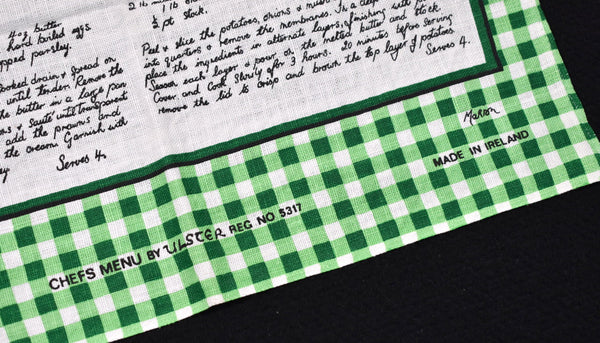 4 oz. butter
hard boiled eggs.
chopped parsley.
cooked drain & spread on
until tender. Remove the
the butter in a large pan
Sauté until transparent
add the prawns and
the cream. Garnish with
Serves 4.
2 lb
1 lb
½ pt Stock.
Peel & slice the potatoes, onions &
into quarters & remove the membranes. In a deep
place the ingredients in alternate layers, finishing with
Season each layer & pour on the melted butter and stock.
Cover and Cook Slowly for 3 hours. 20 minutes before serving
remove the lid to crisp and brown the top layer of potatoes
Serves 4.
CHEFS MENU BY ULSTER REG. NO 5317
MADE IN IRELAND